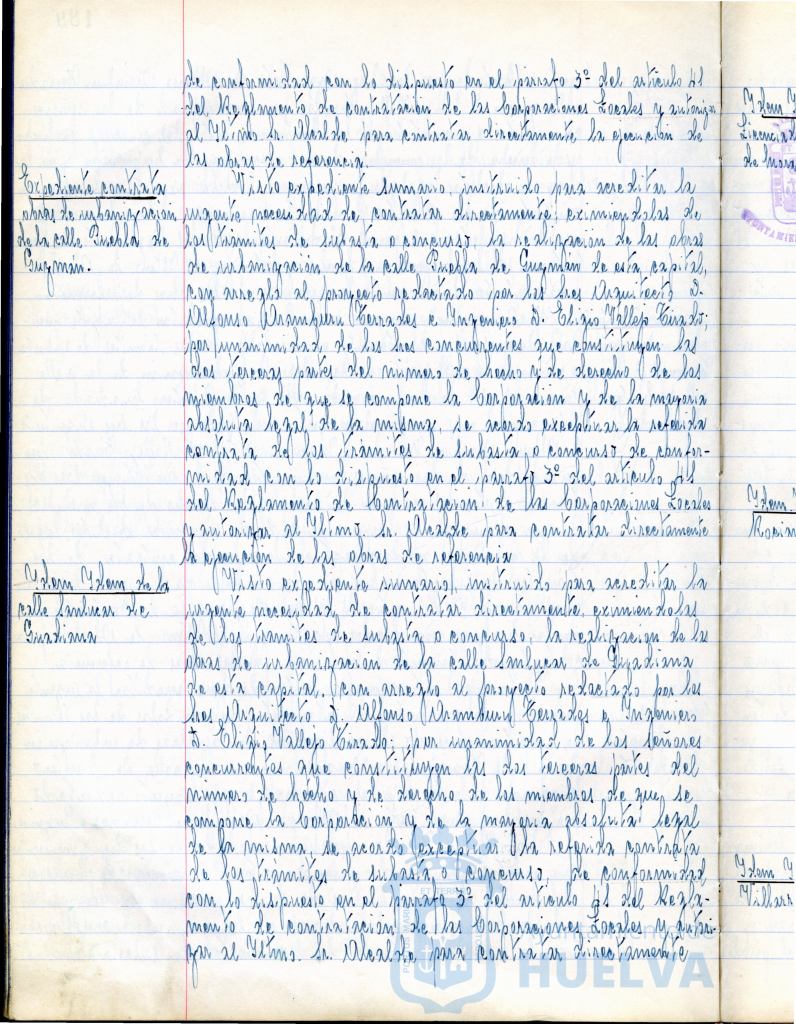 de conformidad con lo dispuesto en el párrafo 3º del artículo 41
del Reglamento de contratación de las Corporaciones Locales y autorizar
al Iltmo. Sr. Alcalde para contratar directamente la ejecución de
las obras de referencia.
Expediente contrata
obras de urbanización
de la calle Puebla de
Guzmán.
Visto expediente sumario, instruido para acreditar la
urgente necesidad de contratar directamente, eximiendolas de
los trámites de subasta o concurso, la realización de las obras
de urbanización de la calle Puebla de Guzmán de esta capital,
con arreglo al proyecto redactado por los Sres Arquitecto D.
Alfonso Aramburu Terrades e Ingeniero D. Eligio Vallejo Tirado;
por unanimidad de los Sres concurrentes que constituyen las
dos terceras partes del número de hecho y de derecho de los
miembros de que se compone la Corporación y de la mayoria
absoluta legal de la misma, se acordó exceptuar la referida
contrata de los trámites de subasta o concurso, de confor-
midad con lo dispuesto en el párrafo 3º del artículo 41
del Reglamento de Contratación de las Corporaciones Locales
y autorizar al Iltmo. Sr. Alcalde para contratar directamente
la ejecución de las obras de referencia
Idem Idem de la
calle Sanlucar de
Guadiana
Visto expediente sumario, instruido para acreditar la
urgente necesidad de contratar directamente, eximiendolas
de los trámites de subasta o concurso, la realización de las
obras de urbanización de la calle Sanlucar de Guadiana
de esta capital, con arreglo al proyecto redactado por los
Sres Arquitecto D. Alfonso Aramburu Terrades e Ingeniero
D. Eligio Vallejo Tirado; por unanimidad de los Señores
concurrentes que constituyen las dos terceras partes del
número de hecho y de derecho de los miembros de que se
compone la Corporación y de la mayoria absoluta legal
de la misma, se acordó exceptuar la referida contrata
de los trámites de subasta o concurso, de conformidad
con lo dispuesto en el párrafo 3º del artículo 41 del Regla-
mento de contratación de las Corporaciones Locales y autori-
zar al Iltmo. Sr. Alcalde para contratar directamente
Idem
Idem
Idem
HUELVA